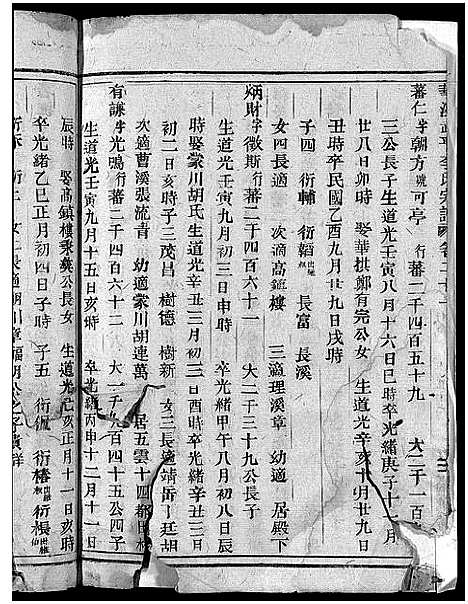 李氏宗譜 卷二十
蕃仁字朝方號可亭 行蕃二千四百五十九 大二千一百
三公長子生道光壬寅八月十六日巳時卒光緒庚子十一月
廿八日卯時 娶華拱鄭有完公女 生道光辛亥十月廿九日
丑時卒民國乙酉九月廿九日戌時
子四 衍輔 衍韜 長富 長溪
女四長適 次滴高鎮樓 三適理溪章 幼適 居殿下
炳財字徵斯行蕃二千四百六十一 大二千三十九公長子
生道光壬寅九月初三日申時 卒光緒甲午八月初八日辰
時娶蒙川胡氏生道光辛丑三月初三日酉時卒光緒辛丑三月
初二日亥時子三茂昌 樹德 樹新 女三長適靖 廷胡
次適曹溪張流青 幼適蒙川胡連萬 居五雲十四都
有謙字光鳴行蕃二千四百六十二 大一千九百四十五公四子
生道光壬寅九月十五日亥時 卒光緒丙申十二月十一日
辰時 娶高鎮樓秉 公長女 生道光己亥正月十一日亥時
卒光緒乙巳正月初四日 時 子五 衍 衍椿 衍根